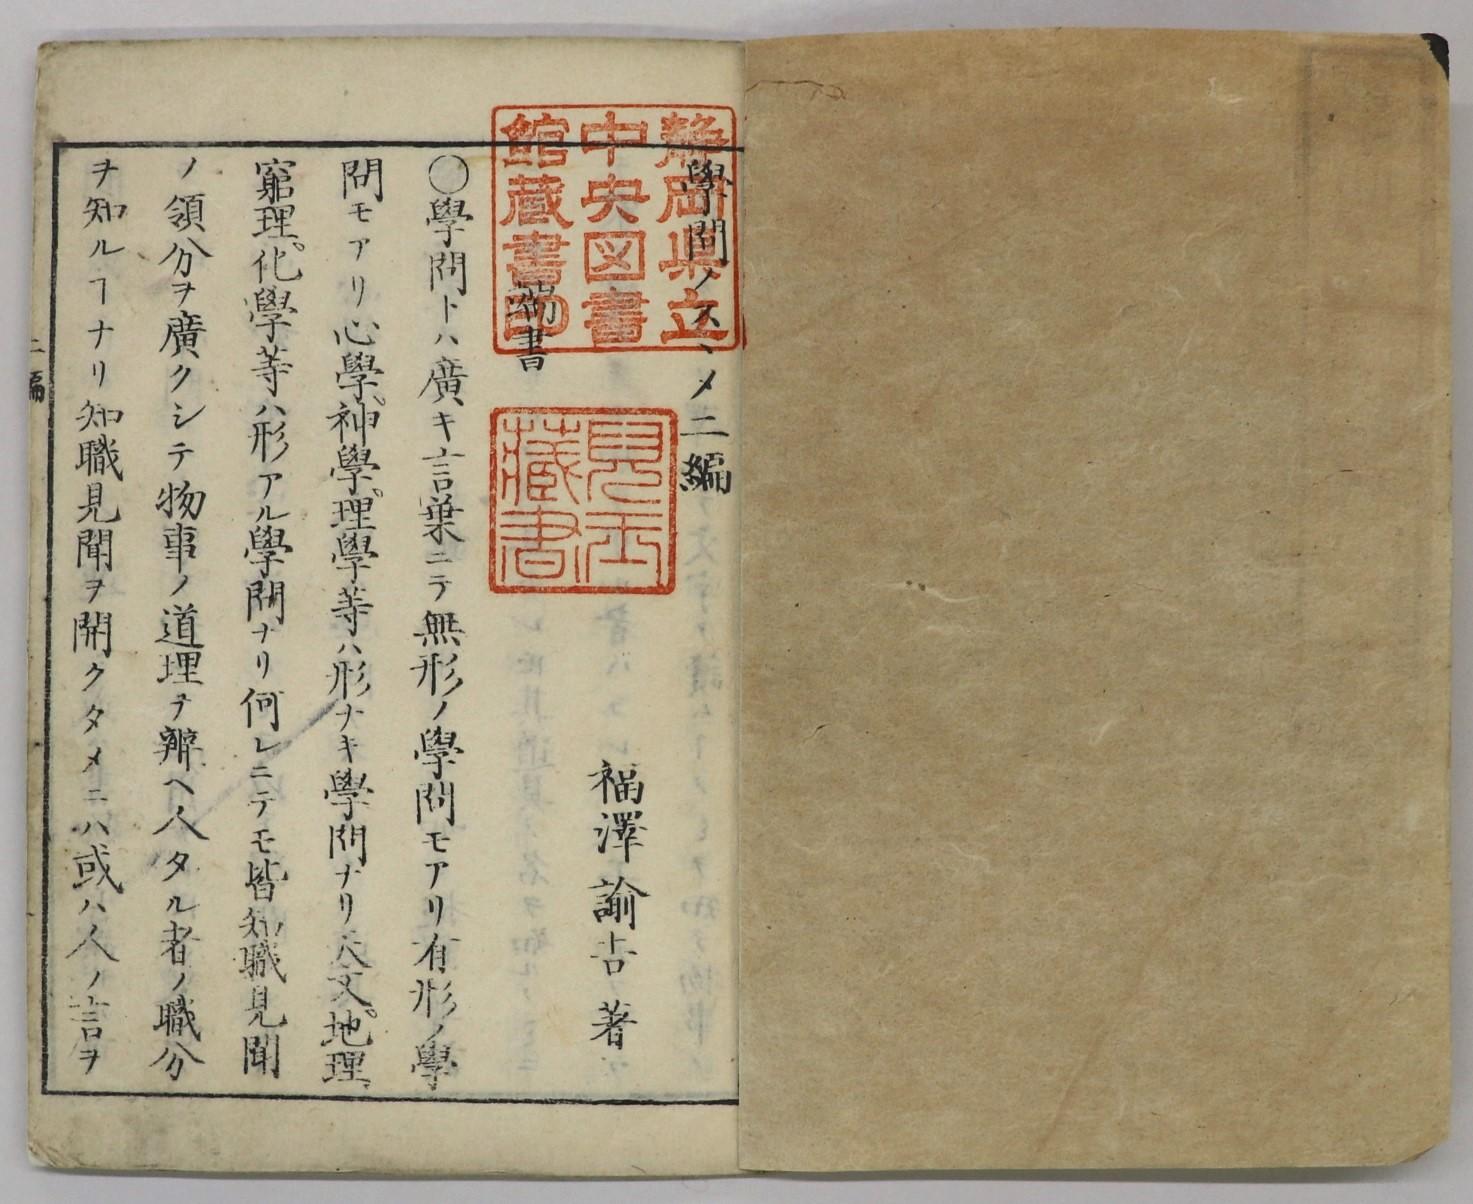 學問ノスヽメ二編
福澤諭吉著
端書
〇學問トハ廣キ言葉ニテ無形ノ學問モアリ有形ノ學
問モアリ心學、神學、理學等ハ形ナキ學問ナリ天文、地理、
窮理、化學等ハ形アル學問ナリ何レニテモ皆知職見聞
ノ領分ヲ廣クシテ物事ノ道理ヲ辨ヘ人タル者ノ職分
ヲ知ルヿナリ知職見聞ヲ開クタメニハ或ハ人ノ言ヲ
二編
静岡県立
中央図書
館蔵書印
児玉
蔵書